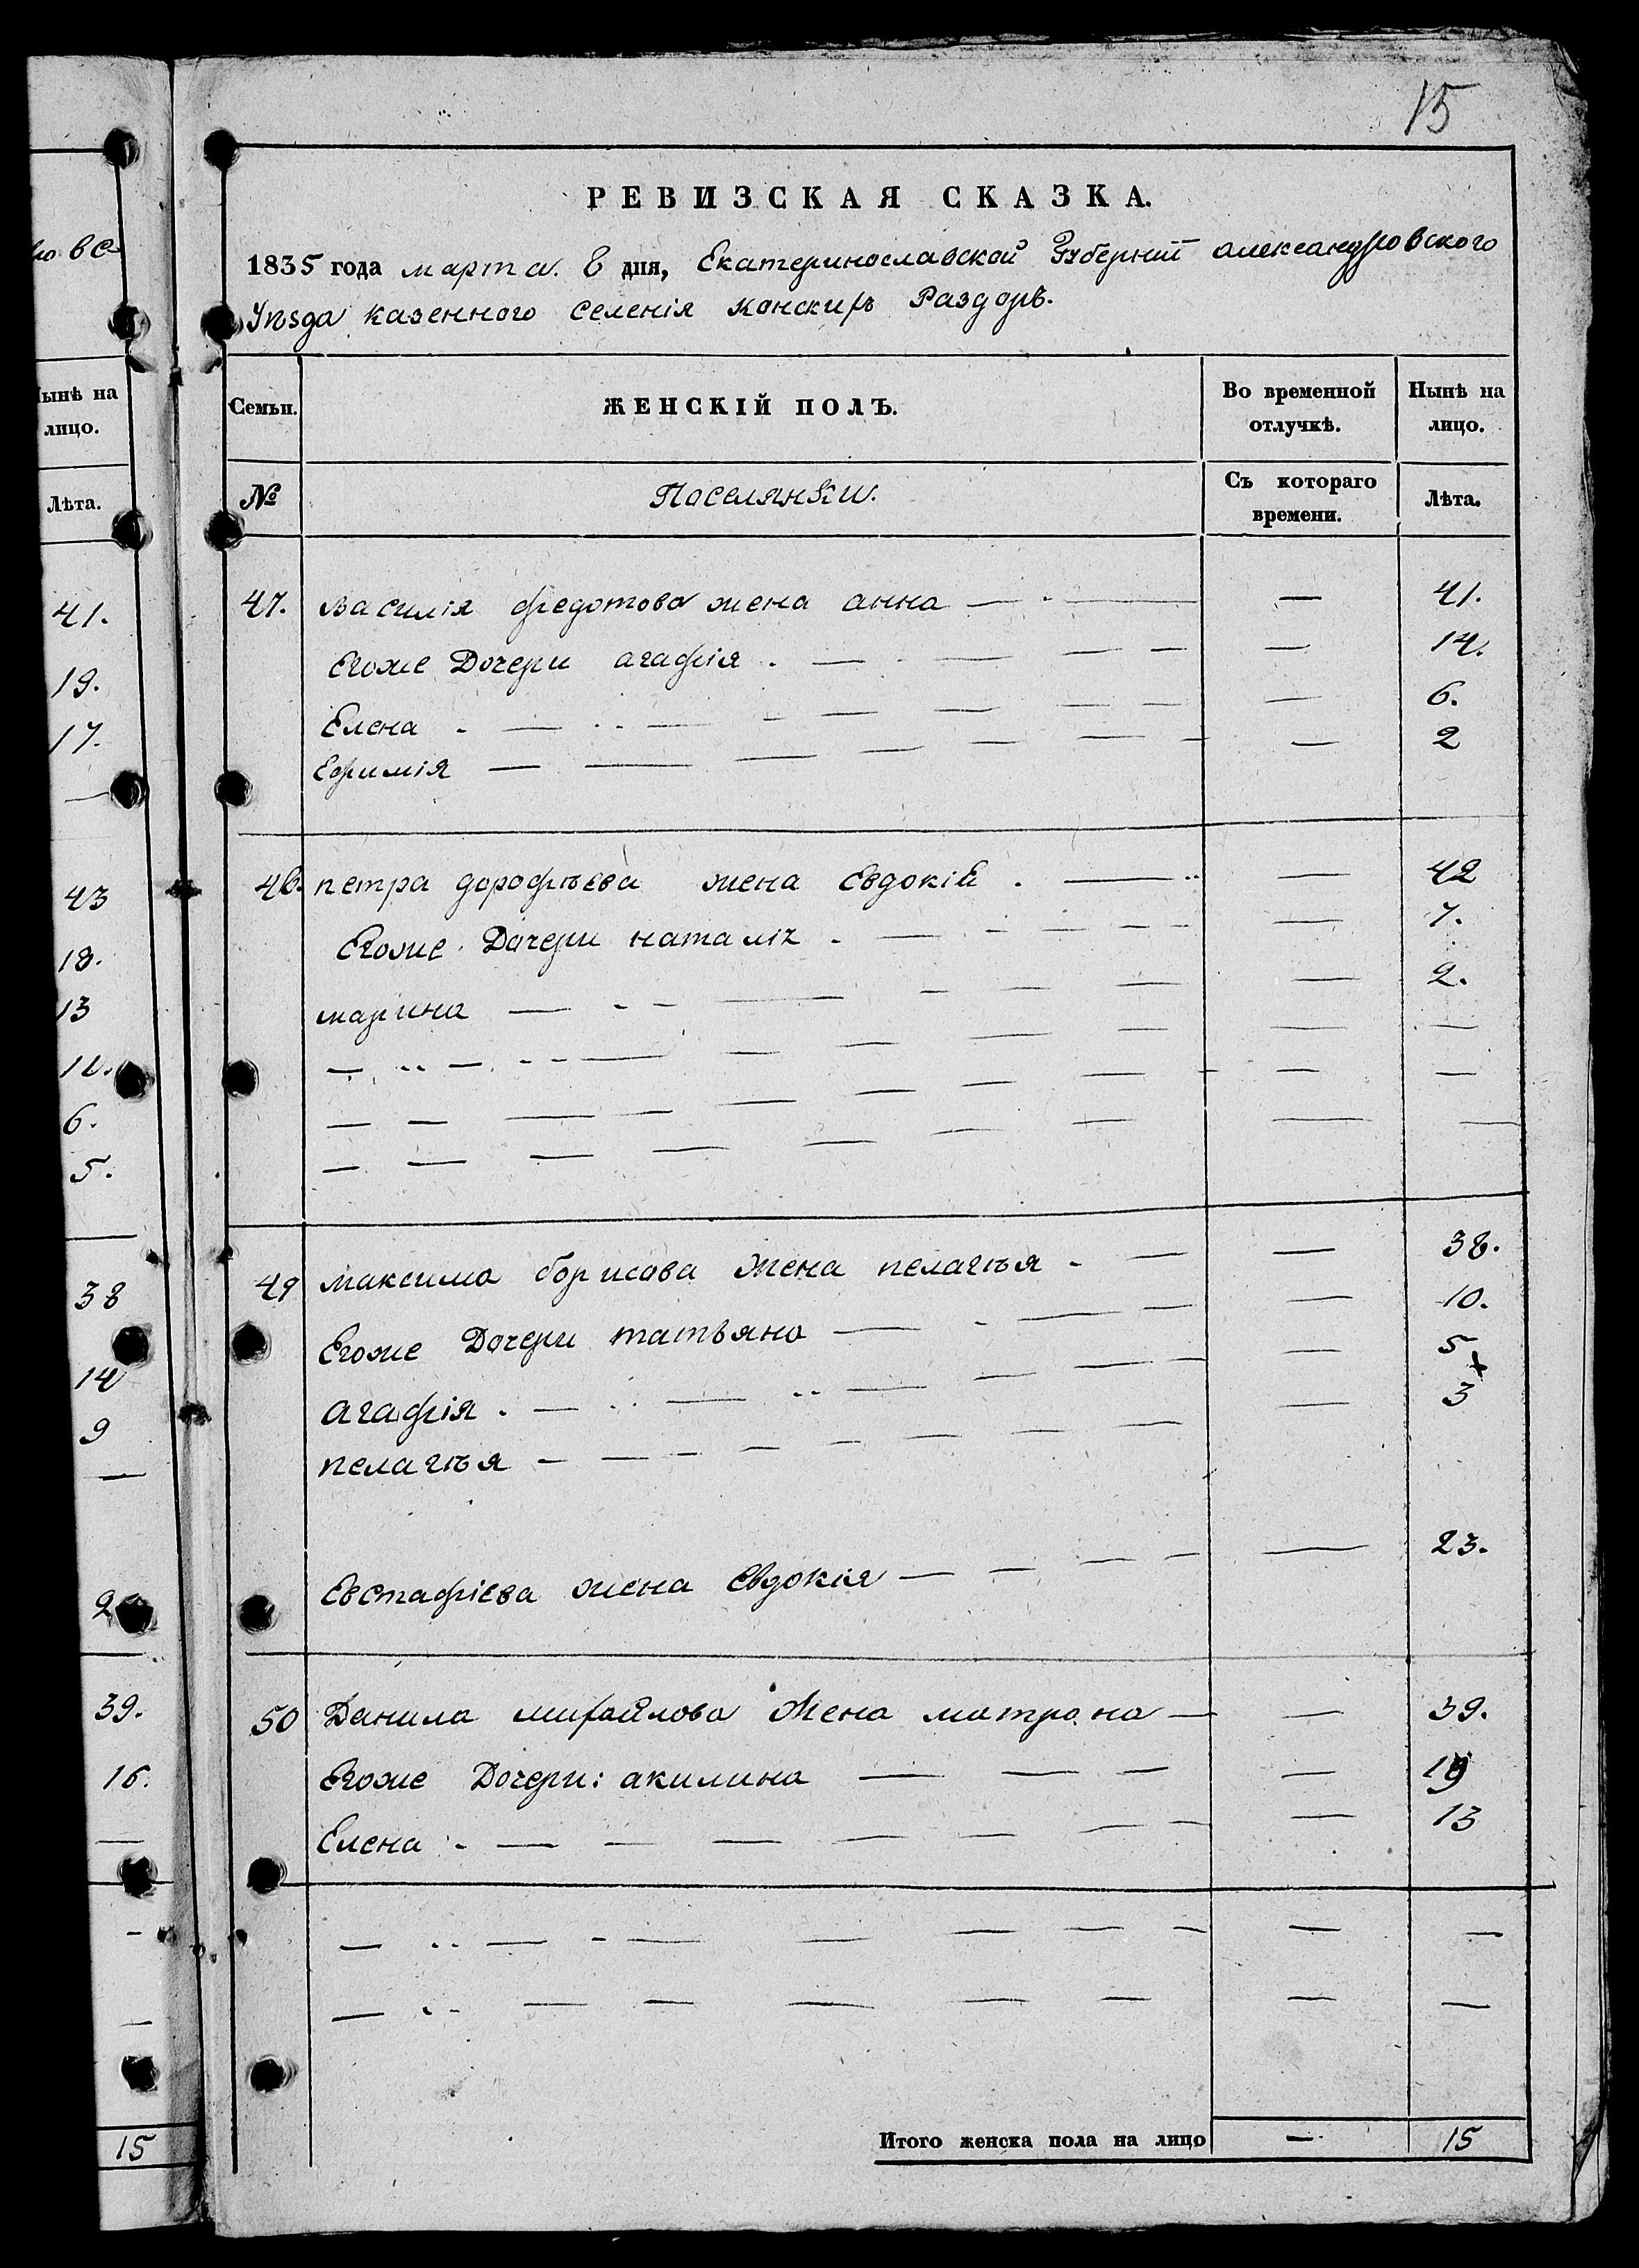 15
РЕВИЗСКАЯ СКАЗКА.
1835 года марта. 8 дня, Екатеринославской Губернии александровского
Уѣзда казенного селенія Конскихъ Раздоръ.
Семьи.
ЖЕНСКІЙ ПОЛЪ.
Во временной отлучкѣ.
Нынѣ на лицо.
№
Поселянки.
Съ котораго времени.
Лѣта.
47. Василія федотова жена анна — — 41.
Егоже Дочери агафія — — 14.
Елена — — 6.
Ефимія — — 2
48. петра дорофѣева жена Евдокій — — 42
Егоже Дочери наталія — — 7.
марина — — 2.
49 максима борисова жена пелагѣя — — 38.
Егоже Дочери татьяна — — 10.
агафія — — 5
пелагѣя — — 3
Евстафіева жена Евдокия — — 23.
50 Данила михайлова Жена матрона — — 39.
Егоже Дочери: акилина — — 19
Елена — — 13
Итого женска пола на лицо — 15
ынѣ на
лицо.
Лѣта.
41.
19.
17.
43
18.
13
6.
5.
38
14
9
39.
16.
15